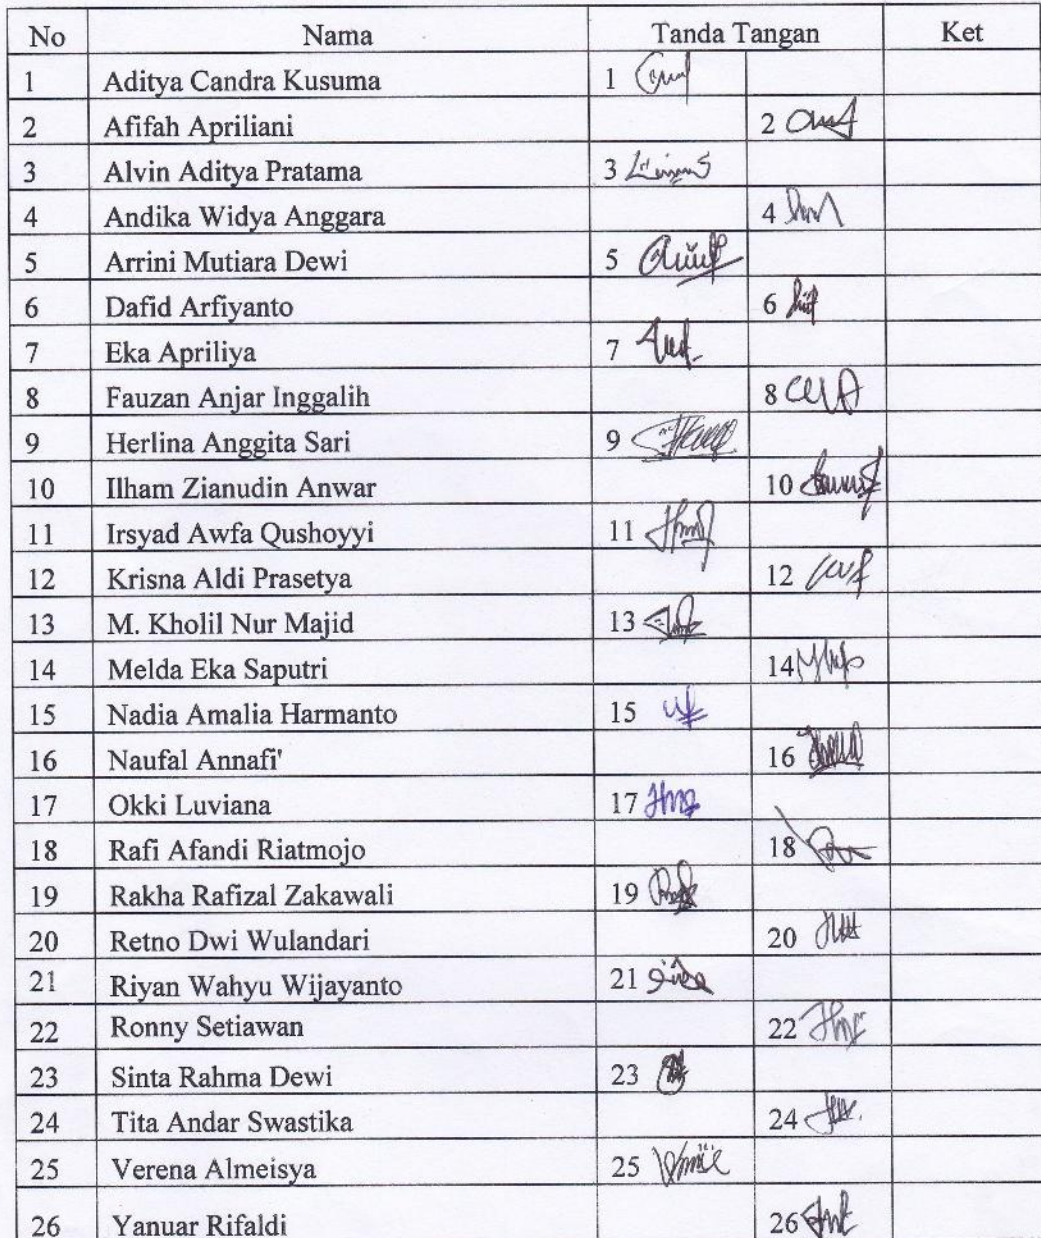 No Nama Tanda Tangan Ket
1 Aditya Candra Kusuma 1
2 Afifah Apriliani 2
3 Alvin Aditya Pratama 3
4 Andika Widya Anggara 4
5 Arrini Mutiara Dewi 5
6 Dafid Arfiyanto 6
7 Eka Apriliya 7
8 Fauzan Anjar Inggalih 8
9 Herlina Anggita Sari 9
10 Ilham Zianudin Anwar 10
11 Irsyad Awfa Qushoyyi 11
12 Krisna Aldi Prasetya 12
13 M. Kholil Nur Majid 13
14 Melda Eka Saputri 14
15 Nadia Amalia Harmanto 15
16 Naufal Annafi' 16
17 Okki Luviana 17
18 Rafi Afandi Riatmojo 18
19 Rakha Rafizal Zakawali 19
20 Retno Dwi Wulandari 20
21 Riyan Wahyu Wijayanto 21
22 Ronny Setiawan 22
23 Sinta Rahma Dewi 23
24 Tita Andar Swastika 24
25 Verena Almeisya 25
26 Yanuar Rifaldi 26